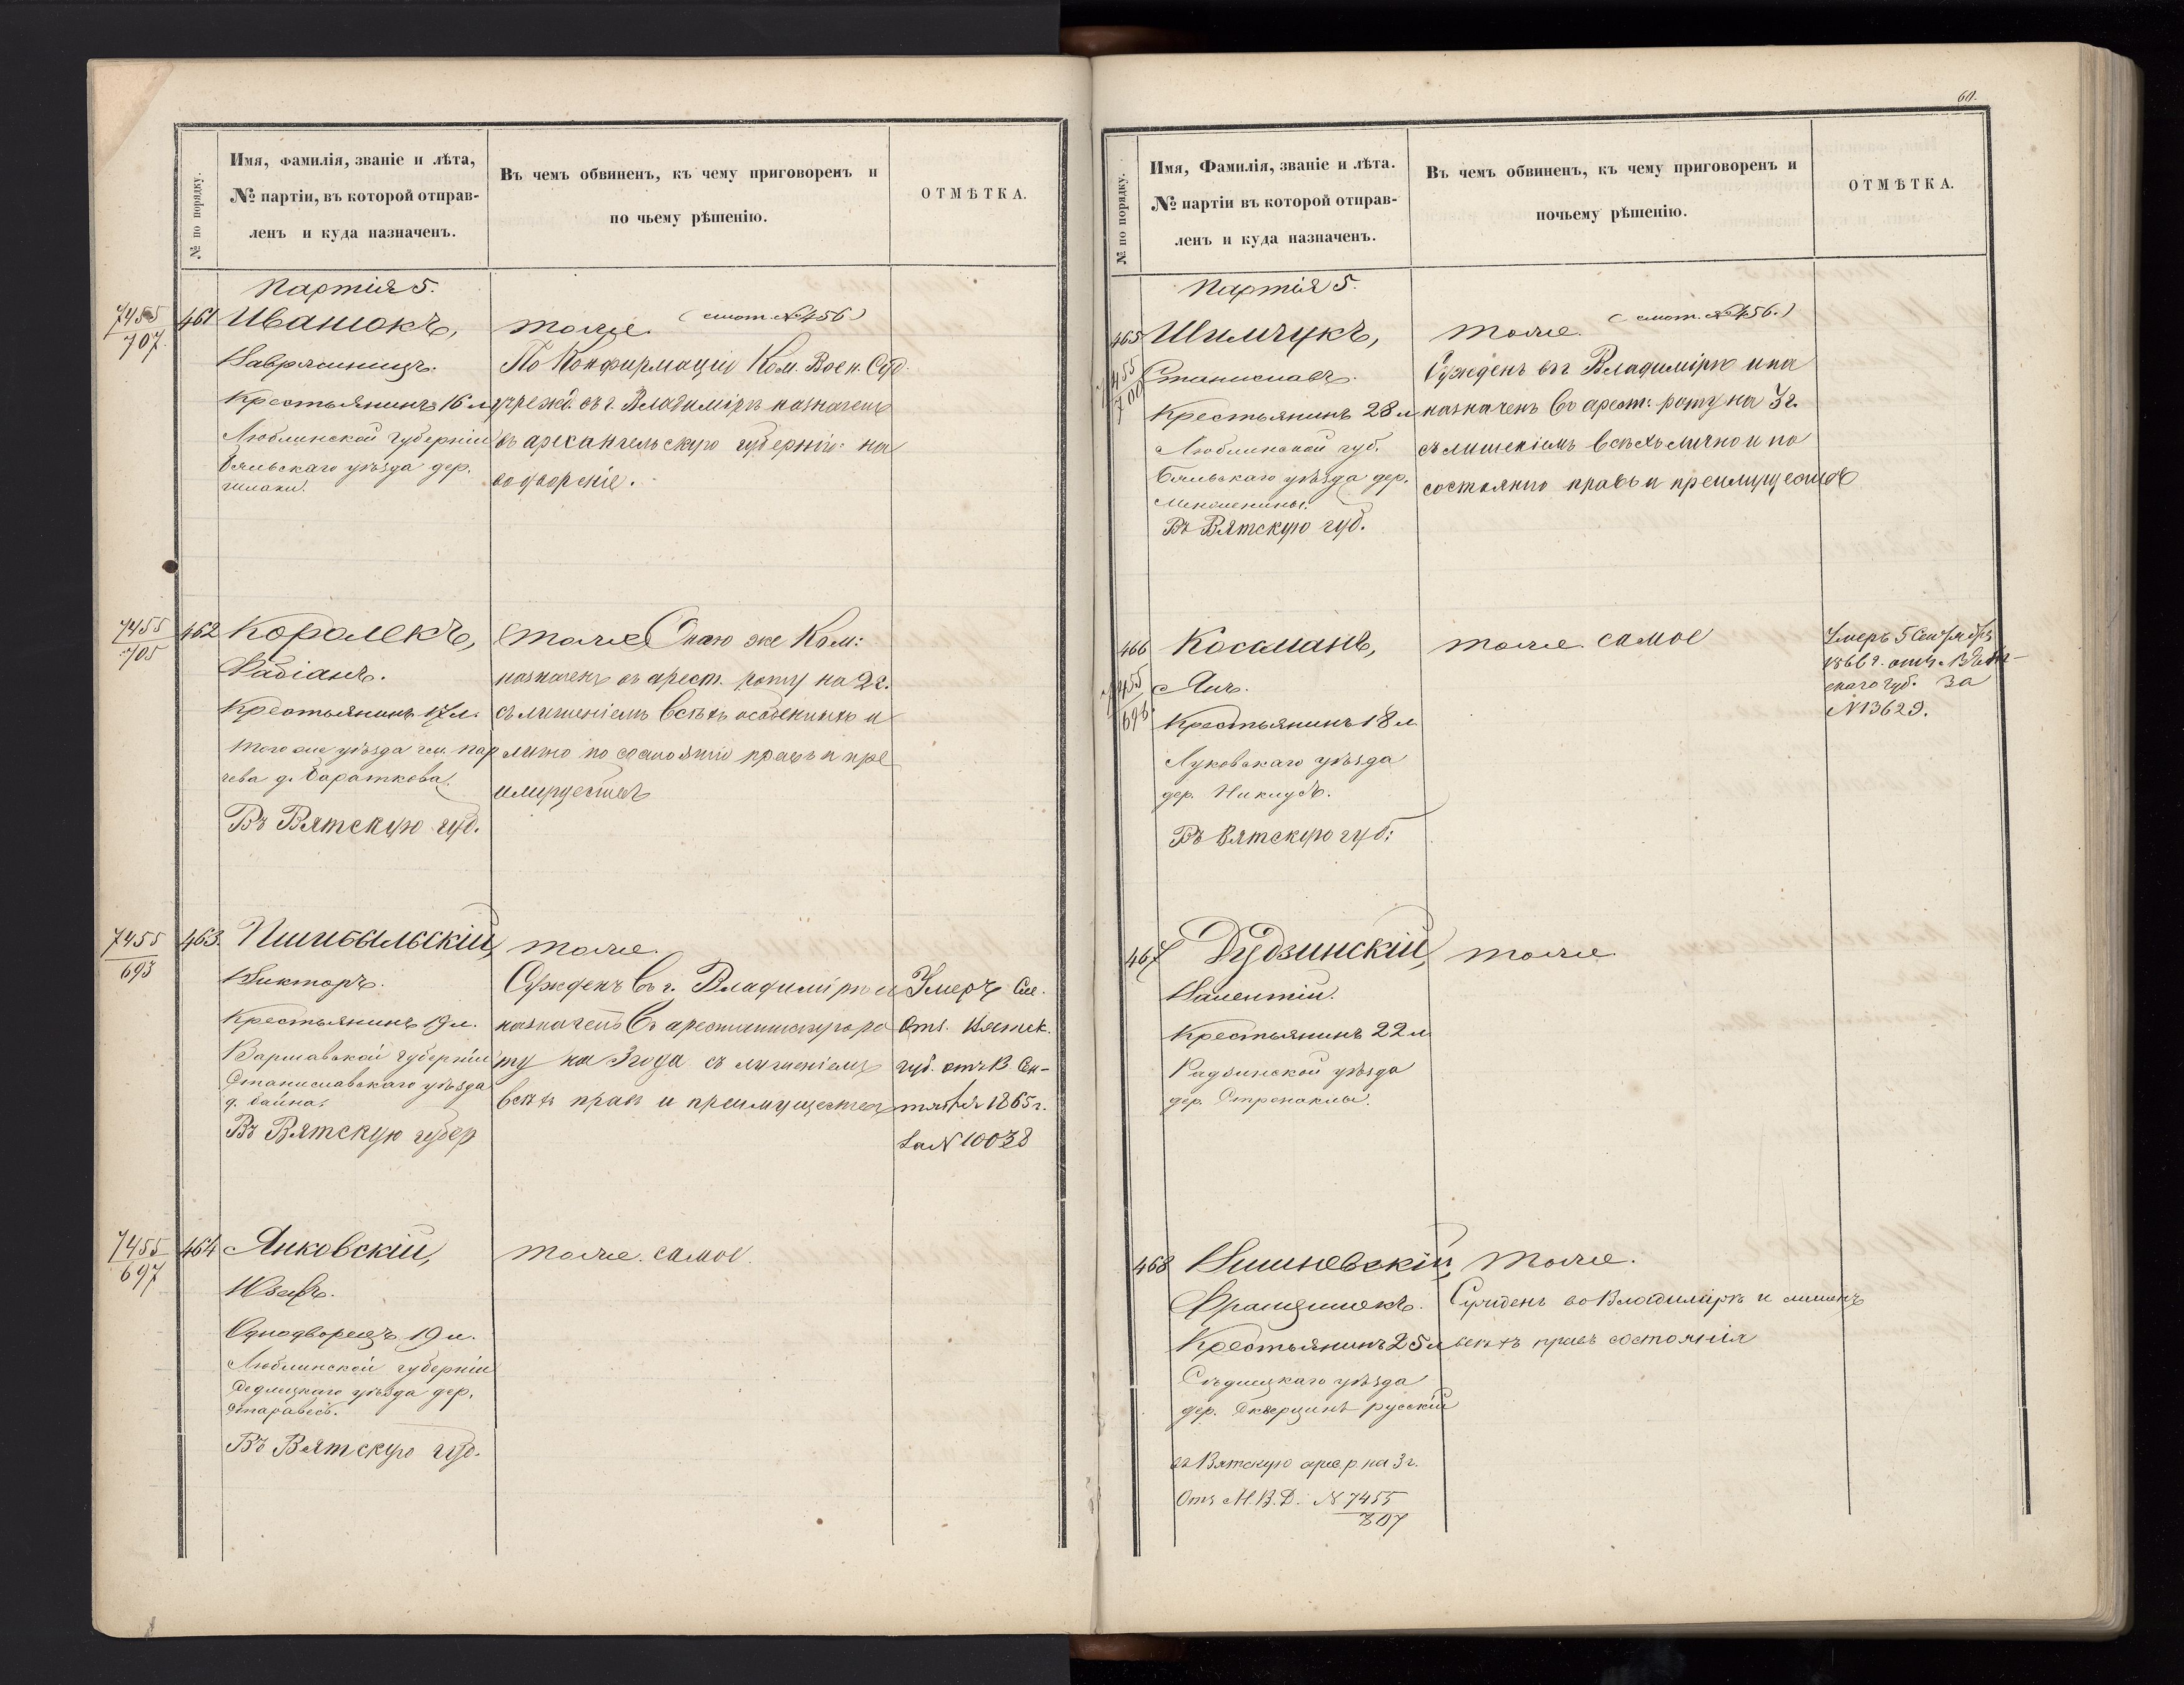 Имя, Фамилія, званіе и лѣта,
№ партіи, въ которой отправ-
ленъ и куда назначенъ.
Въ чемъ обвиненъ, къ чему приговоренъ и
по чьему рѣшенію.
ОТМѢТКА.
№ по порядку.
Партія 5.
7455
707.
461
Иванюкъ,
тоже (смот. №456)
По Конфирмаціи Ком. Воен. Суд.
Крестьянинъ 16 л.
учрежд. въ г. Владимірѣ назначенъ
Люблинской Губерніи
въ архангельскую губернію на
Бяльскаго уѣзда дер.
водвореніе.
7455
705
462
Королекъ,
тоже Оною же Ком:
Фабіанъ.
назначенъ въ арест. роту на 2 г.
Крестьянинъ 17 л.
съ лишеніемъ всѣхъ особенныхъ и
того же уѣзда гм. Пар
лично по состоянію правъ и пре
чева д. Бараткова.
имуществъ
Въ Вятскую губ.
7455
693
463.
Пшибыльскій,
тоже.
Викторъ.
Сужденъ въ г. Владимірѣ и
Умеръ
Крестьянинъ 19 л.
назначенъ въ арестантскую ро
Отз. Вятск.
Варшавской губерніи
ту на 3 года съ лишеніемъ
губ. отъ 13 Сен-
Станиславскаго уѣзда
всѣхъ правъ и преимуществъ
тября 1865 г.
д. Байна.
Въ Вятскую губер
за № 10038
7455
697
464
Янковскій,
тоже самое.
Юзефъ.
Однодворецъ 19 л.
Люблинской губерніи
Седлицкаго уѣзда дер.
Старавесь.
Въ Вятскую губ.
60.
Имя, Фамилія, званіе и лѣта.
№ партіи въ которой отправ-
ленъ и куда назначенъ.
Въ чемъ обвиненъ, къ чему приговоренъ и
почьему рѣшенію.
ОТМѢТКА.
№ по порядку.
Партія 5.
465
7455
700
Шимчукъ,
тоже. (смот. №456.)
Станиславъ.
Сужденъ въ г Владимірѣ и на
Крестьянинъ 28 л
назначенъ въ арест: роту на 3 г.
Люблинской губ.
съ лишеніемъ всѣхъ лично и по
Бяльскаго уѣзда дер.
состоянію правъ и преимуществъ
Въ Вятскую губ.
466
7455
696
Коссманъ,
тоже самое
Умеръ 5 Сентября
1866 г. отз. Вят-
Янъ.
скаго губ. за
Крестьянинъ 18 л
№ 13629.
Луковскаго уѣзда
дер.
Въ Вятскую губ:
467
Дудзинскій,
тоже
Валентій.
Крестьянинъ 22 л
Радзинской уѣзда
дер.
468
Вишневскій,
тоже.
Францишекъ.
Сужденъ во Владимірѣ и лишенъ
Крестьянинъ 25 л
всѣхъ правъ состоянія
Сѣдлецкаго уѣзда
дер. русскій
въ Вятскую арес. р. на 3 г.
Отз М.В.Д. № 7455
807